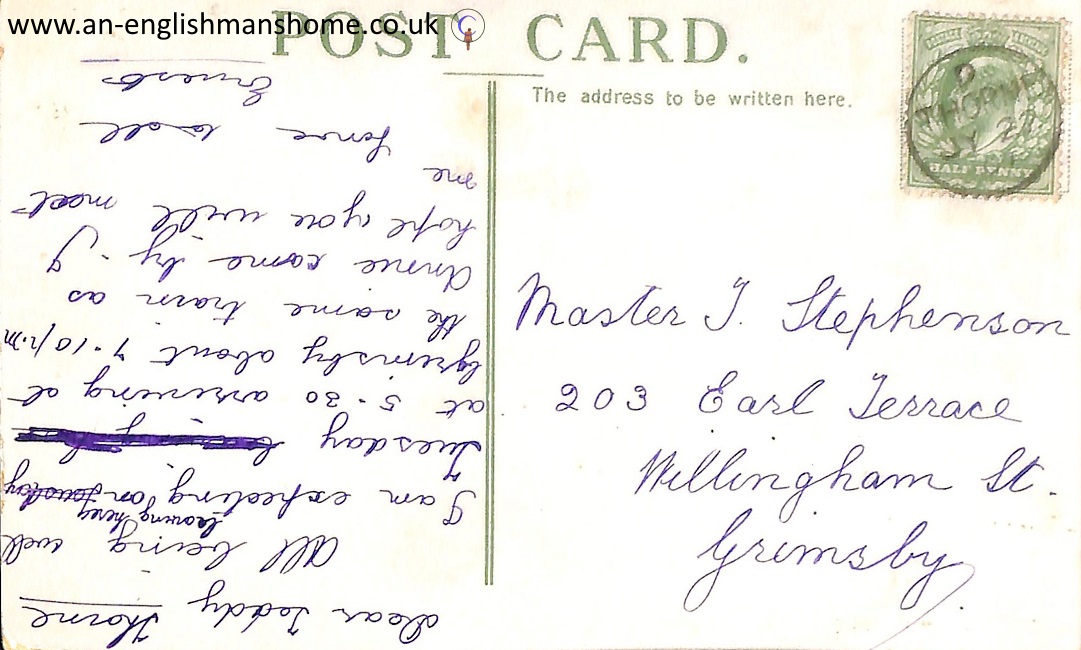 www.an-englishmanshome.co.uk
POST CARD.
The address to be written here.
THORNE
JY 2
HALF PENNY
Master T. Stephenson
203 Earl Terrace
Willingham St.
Grimsby
Thorne
Dear Teddy
All being well
I am expecting on
leaving here
Tuesday
at 5.30 arriving at
Grimsby about 7.10 p.m
the same train as
Annie came by. I
hope you will meet
me
love to all
Ernest